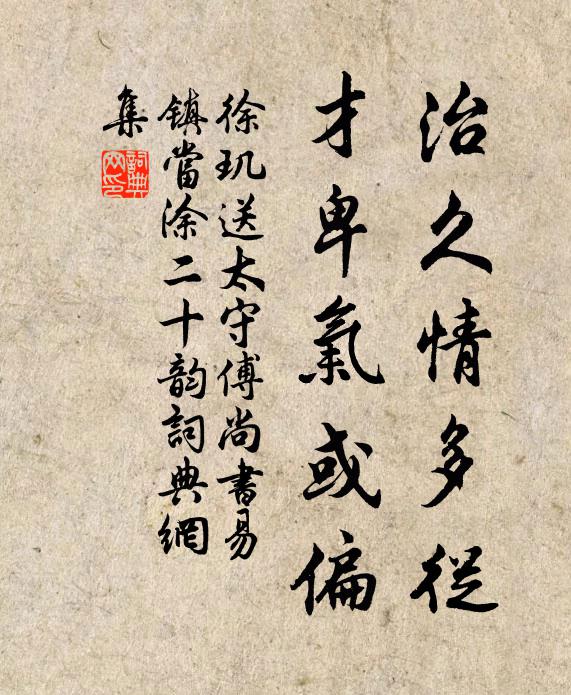 治久情多從
才卑氣或偏
徐玑送太守傅尚書易
鎮當涂二十韵詞典網
集
詞典网印